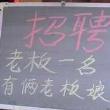 招聘
老板一名
有俩老板娘